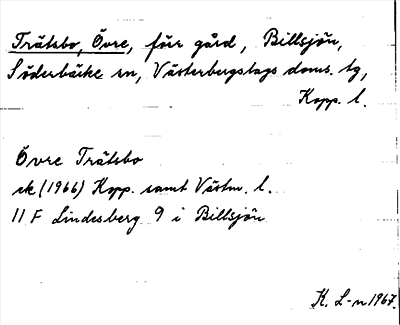 Trätsbo, Övre, förr gård, Billsjön,
Söderbärke sn, Västerbergslags doms. tg,
Kopp. l.
Övre Trätsbo
rk (1966) Kopp. samt Västm. l.
11 F Lindesberg 9 i Billsjön
K. L-n 1967.